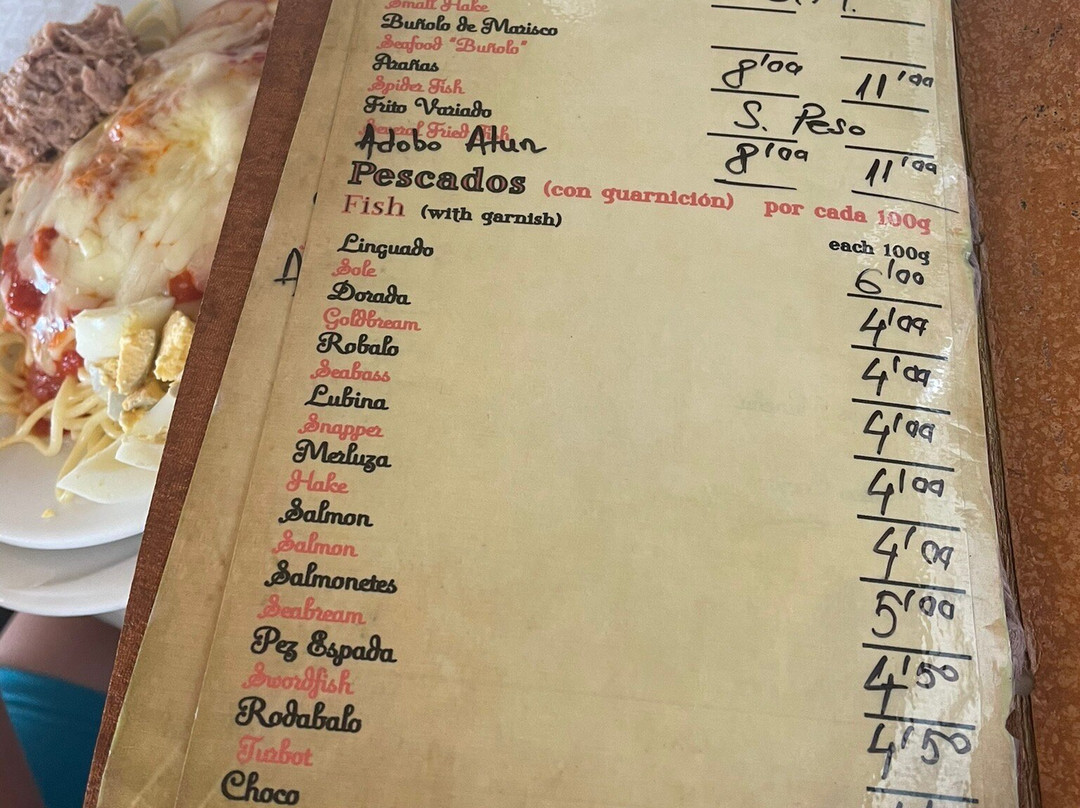 Small Hake
Buñolo de Marisco
Seafood "Buñolo"
Arañas 8'00 11'00
Spider Fish
Frito Variado S. Peso
Several Fried Fish
Adobo Atun 8'00 11'00
Pescados (con guarnición) por cada 100g
Fish (with garnish) each 100g
Linguado 6'00
Sole
Dorada 4'00
Goldbream
Robalo 4'00
Seabass
Lubina 4'00
Snapper
Merluza 4'00
Hake
Salmon 4'00
Salmon
Salmonetes 5'00
Seabream
Pez Espada 4'50
Swordfish
Rodabalo 4'50
Turbot
Choco
A